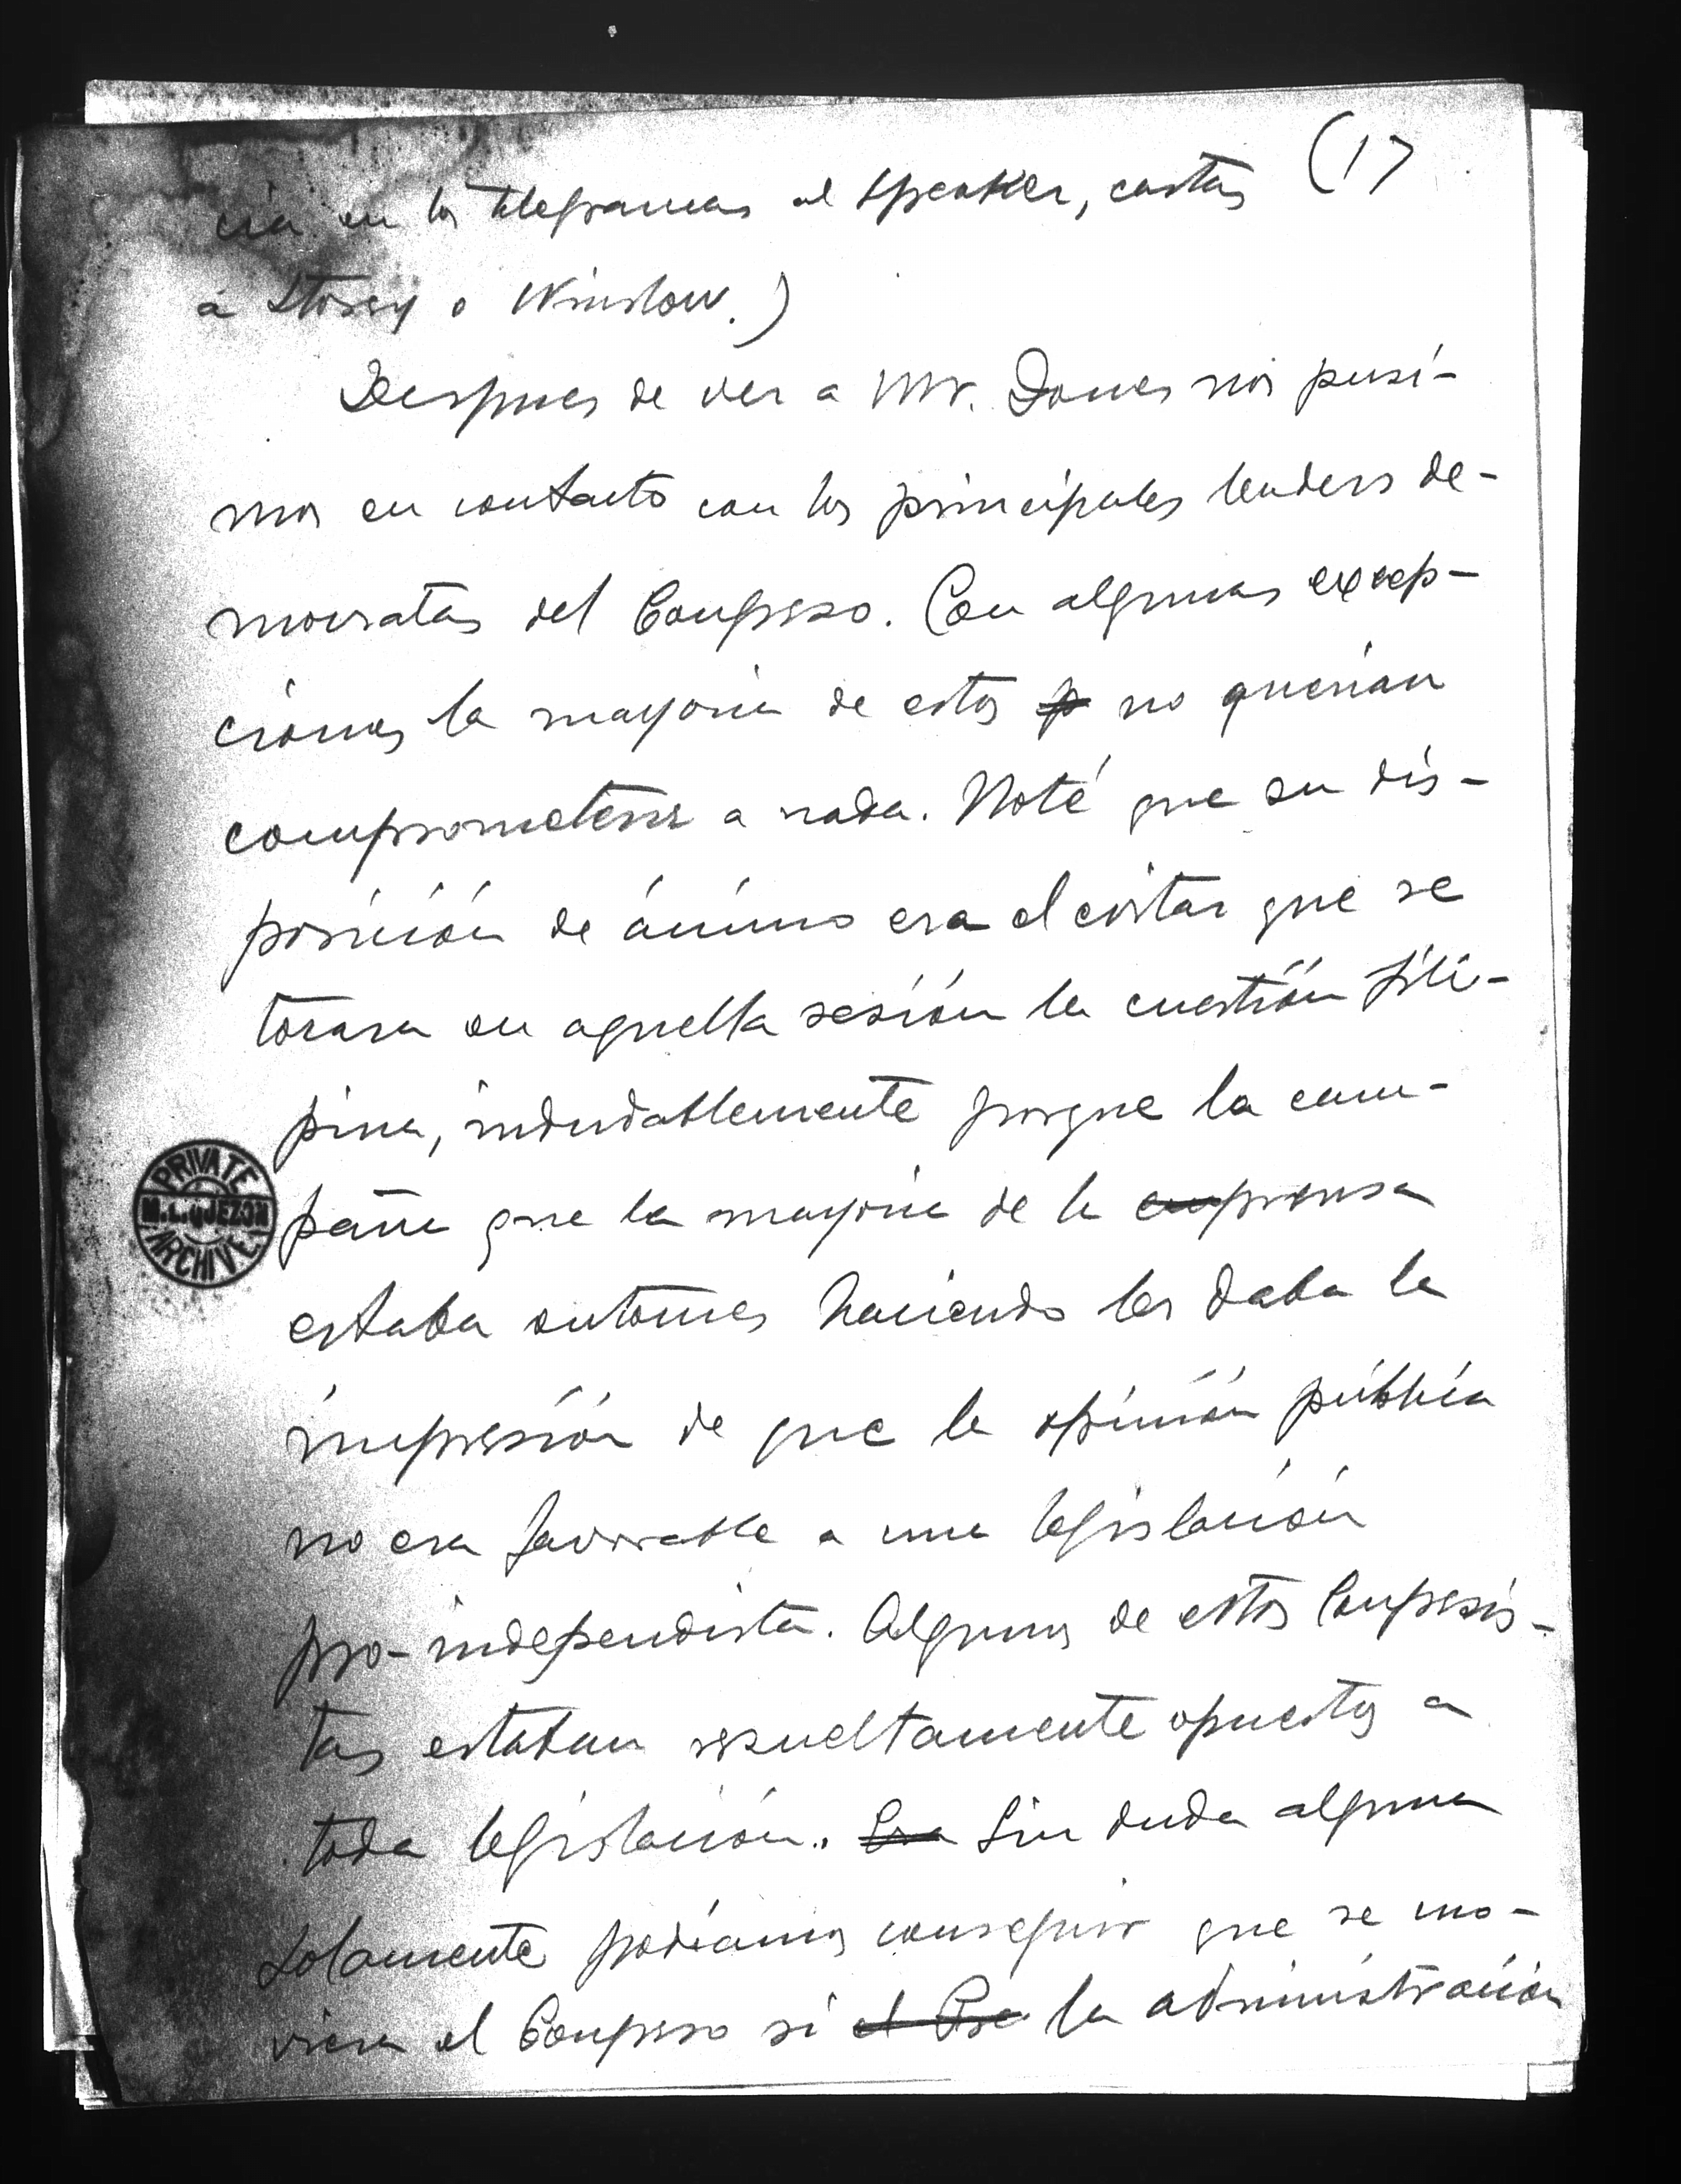 (17
cia en los telegramas al speaker, cartas
á Storey o Winslow.)
Despues de ver a Mr. Jones nos pusi-
mos en contacto con los principales leaders de-
mocratas del Congreso. Con algunas excep-
ciones la mayoria de estos p no querian
comprometerse a nada. Noté que su dis-
posición de ánimo era el evitar que se
tocara en aquella sesión la cuestión fili-
pina, indudablemente porque la cam-
paña que la mayoria de la emprensa
estaba entonces haciendo les daba la
impresión de que la opinión pública
no era favorable a una legislación
pro-independista. Algunos de estos Congresis-
tas estaban resueltamente opuestos a
toda legislación. Era Sin duda alguna
solamente podíamos conseguir que se mo-
viera el Congreso si el Pre la administración
PRIVATE
M.L. QUEZON
ARCHIVE